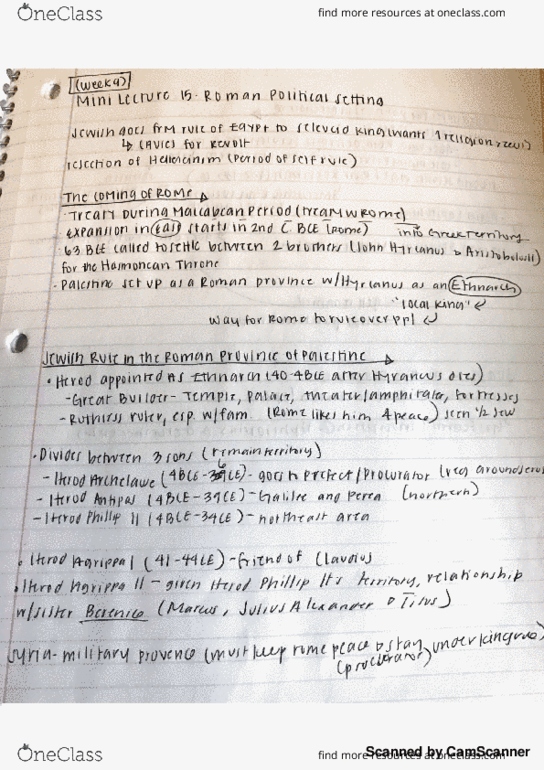 OneClass
find more resources at oneclass.com
(week 9)
Mini Lecture 15 - Roman Political Setting
Jewish goes frm rule of Egypt to seleucid king wants 1 religion
↳ causes for Revolt
rejection of Hellenism (Period of self rule)
The coming of ROME
- Treaty During Maccabean Period (treaty w Rome)
- expansion in east starts in 2nd C BCE (Rome) into Greek territory
- 63 BCE called to settle between 2 brothers (John Hyrcanus & Aristobulus II)
for the Hasmonean Throne
- Palestine set up as a Roman province w/Hyrcanus as an Ethnarch
"local king"
way for Rome to rule over ppl
Jewish Rule in the Roman Province of Palestine
• Herod appointed as Ethnarch (40-4BCE after Hyrcanus dies)
- Great Builder - Temple, Palace, theater/amphitheater, fortresses
- Ruthless ruler, esp w/fam. (Rome likes him 4 peace) seen 1/2 Jew
• Divides between 3 sons (remain territory)
- Herod Archelaus (4BCE-6CE) - goes to prefect/Procurator
- Herod Antipas (4BCE-39CE) - Galilee and Perea (northern)
- Herod Phillip II (4BCE-34CE) - northeast area
• Herod Agrippa I (41-44CE) - friend of Claudius
• Herod Agrippa II - given Herod Phillip II's territory, relationship
w/sister Berenice (Marcus, Julius Alexander & Titus)
Syria - military provence (must keep rome peace & stay under king
(procurator)
OneClass
find more resources at oneclass.com
Scanned by CamScanner